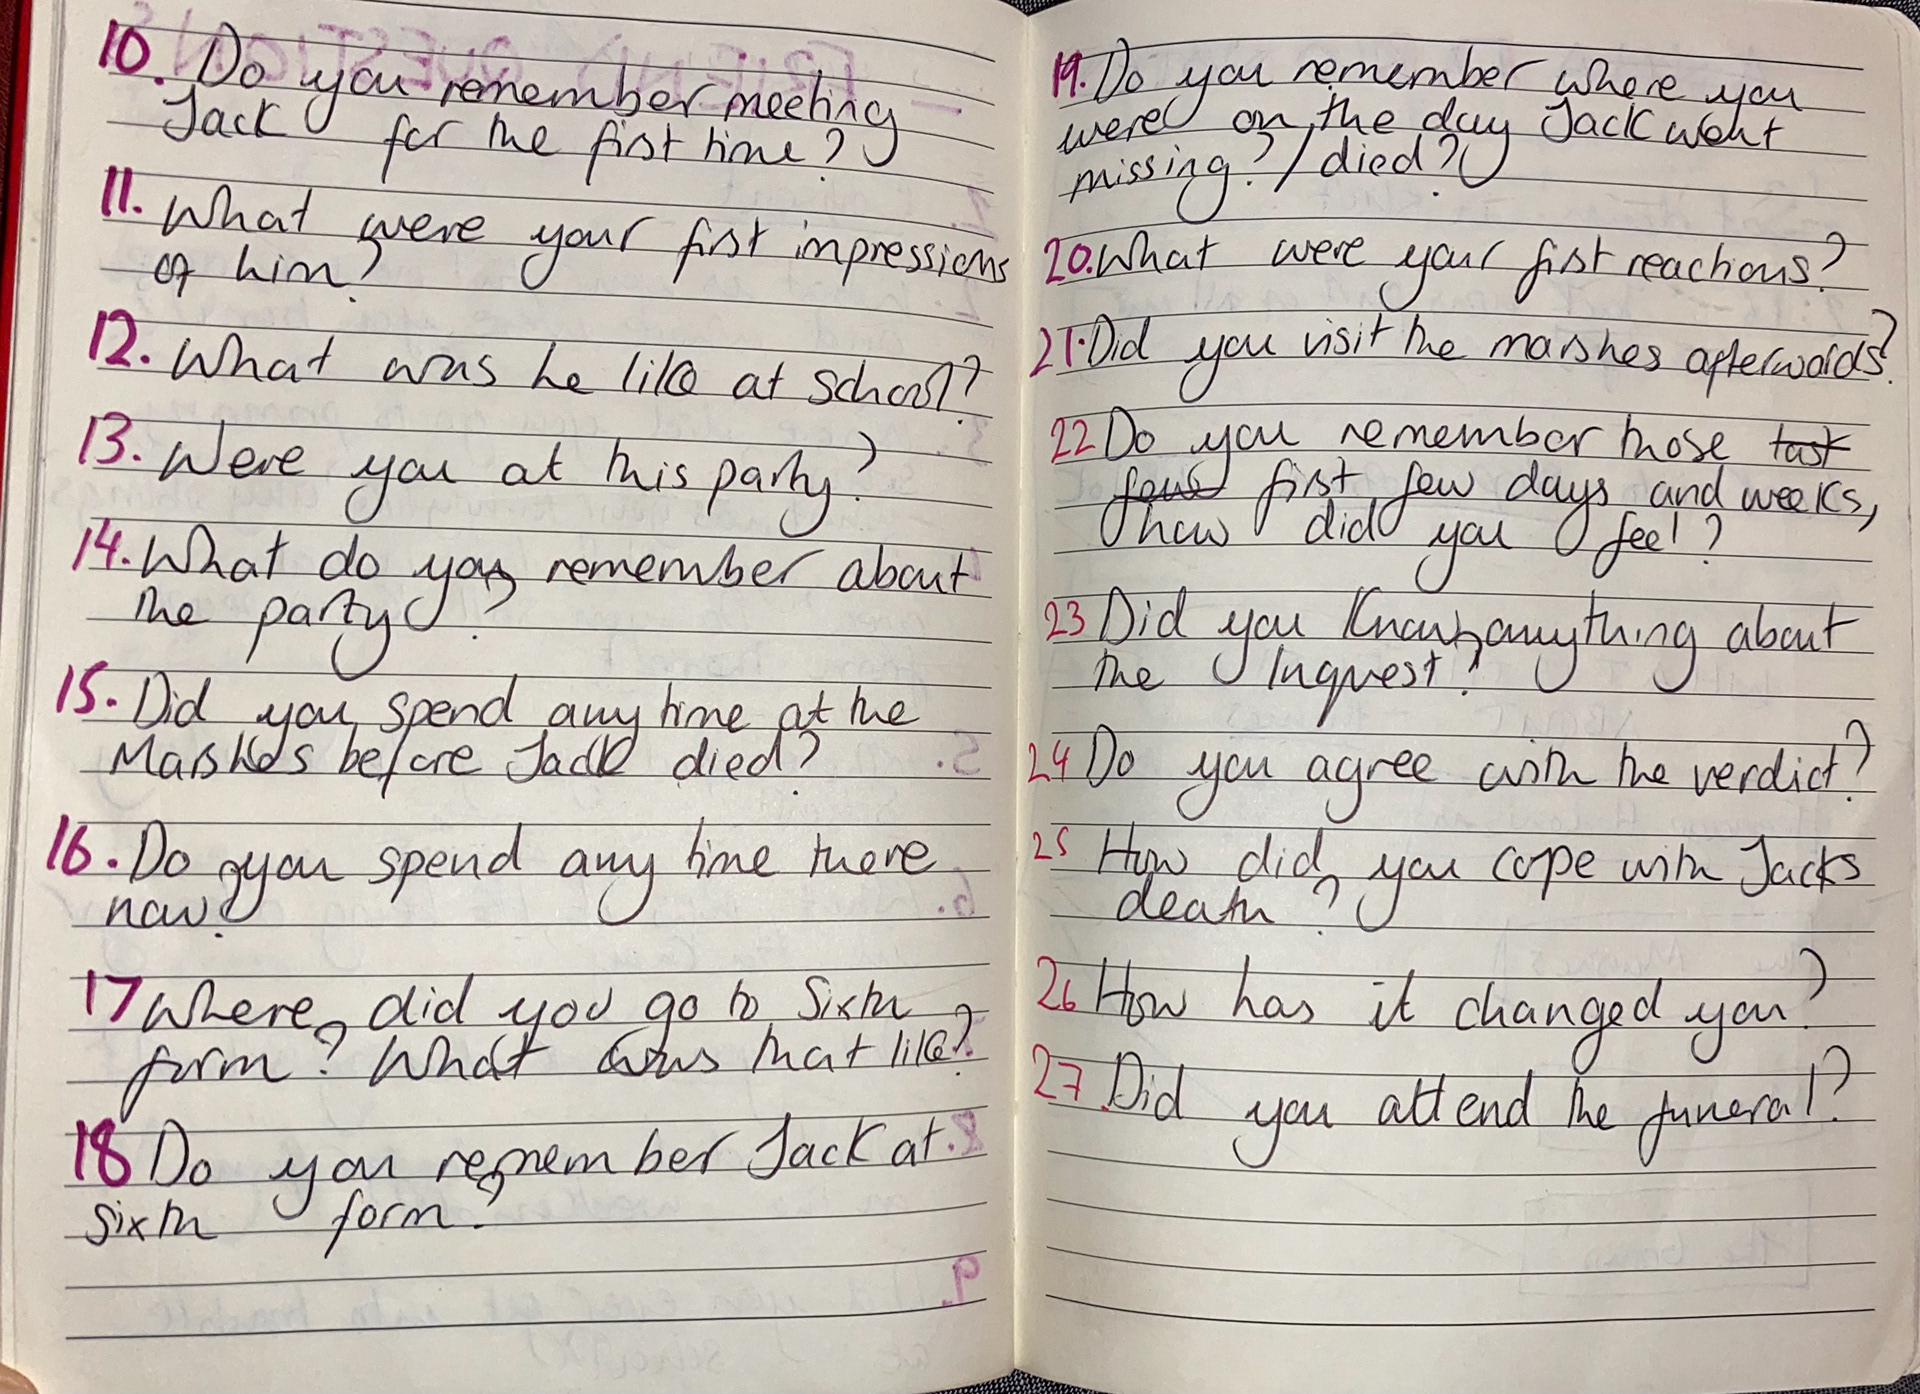 10. Do you remember meeting
Jack for the first time?
11. What were your first impressions
of him?
12. What was he like at school?
13. Were you at this party?
14. What do you remember about
the party?
15. Did you spend any time at the
Marshes before Jack died?
16. Do you spend any time there
now?
17 Where did you go to Sixth
form? What was that like?
18 Do you remember Jack at
sixth form?
19. Do you remember where you
were on the day Jack went
missing? / died?
20. What were your first reactions?
21. Did you visit the marshes afterwards?
22 Do you remember those last
few first few days and weeks,
how did you feel?
23 Did you know anything about
the Inquest?
24 Do you agree with the verdict?
25 How did you cope with Jacks
death?
26 How has it changed you?
27. Did you attend the funeral?